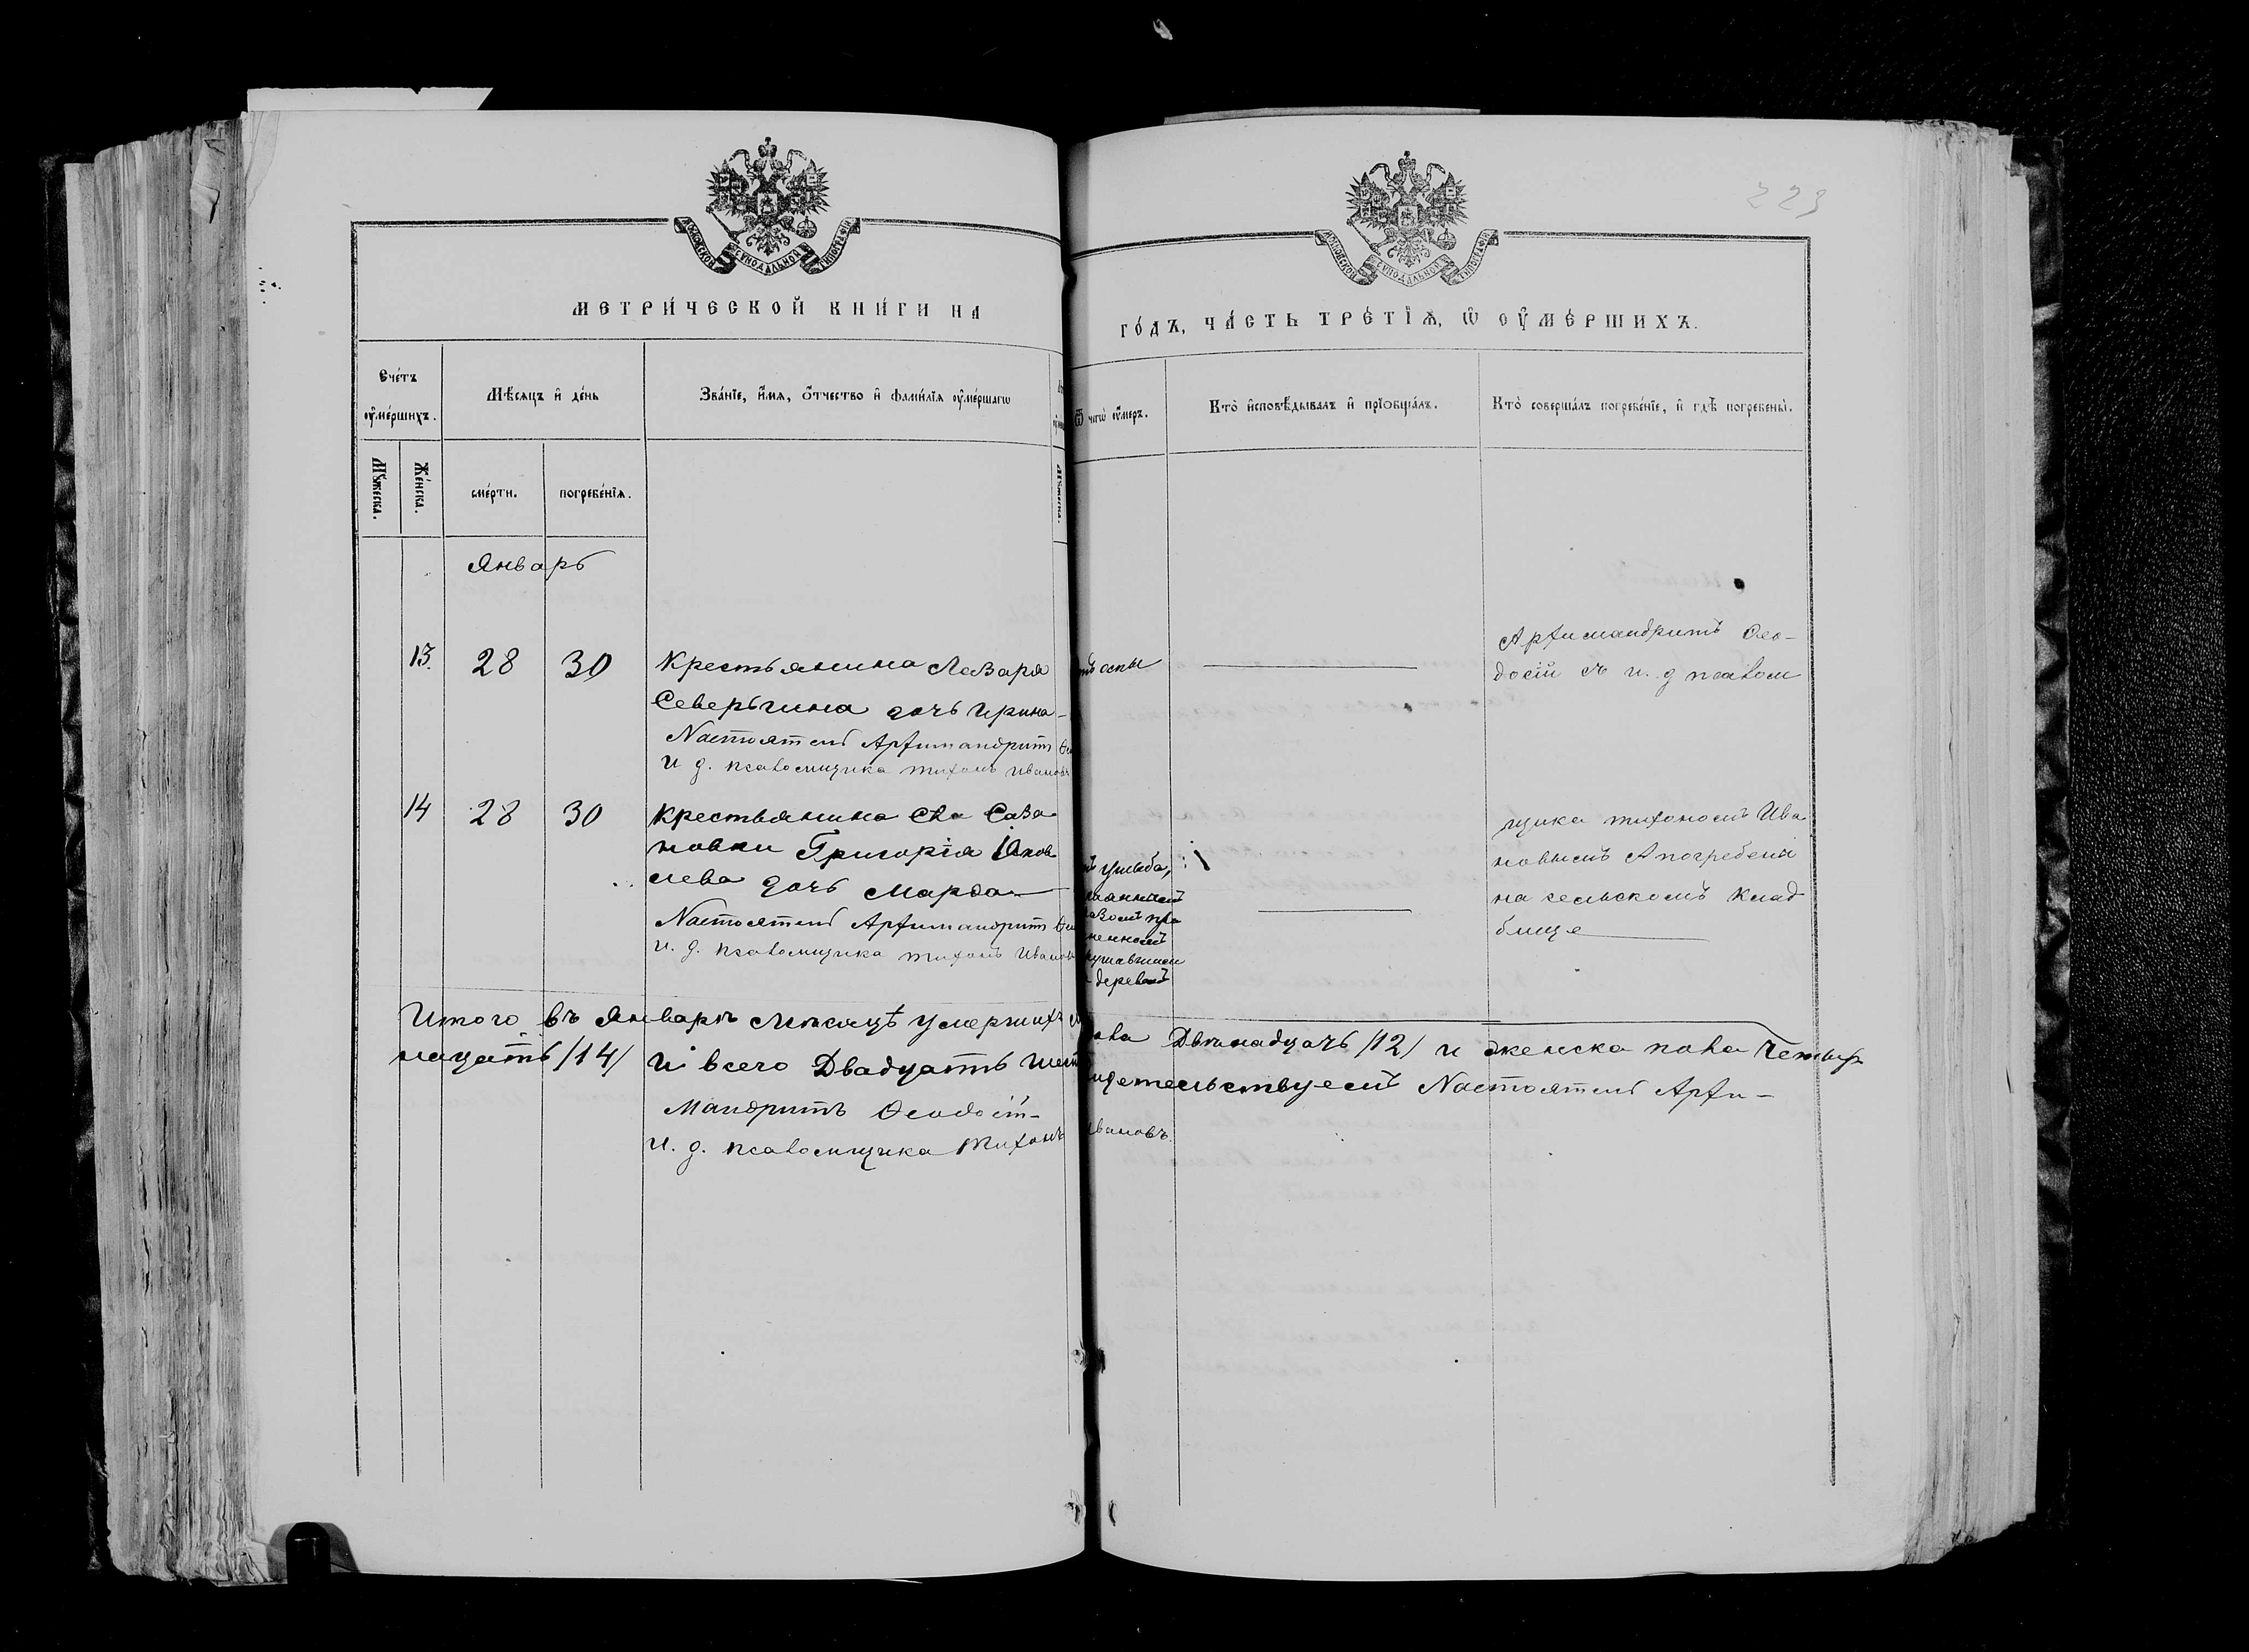 223
МОСКОВСКОЙ СѴНОДАЛЬНОЙ ТИПОГРАФІИ
МОСКОВСКОЙ СѴНОДАЛЬНОЙ ТИПОГРАФІИ
МЕТРИ́ЧЕСКОЙ КНИ́ГИ НА
ГО́ДЪ, ЧА́СТЬ ТРЕ́ТІѦ, Ѡ҆ ОУ҆МЕ́РШИХЪ.
Сче́тъ
оу҆ме́ршихъ.
Мѣ́сяцъ и҆ де́нь
Зва́нїе, и҆́мя, ѻ҆́тчество и҆ фами́лїя оу҆ме́ршагѡ
Ѿ чегѡ̀ оу҆́меръ.
Кто̀ и҆сповѣ́дывалъ и҆ прїобща́лъ.
Кто̀ соверша́лъ погребе́нїе, и҆ гдѣ̀ погребены̀.
Мꙋ́жеска.
Же́нска.
сме́рти.
погребе́нїя.
Мꙋ́жеска.
Январь
13. 28 30 Крестьянина Лазаря
Северьгина дочь Ирина
Настоятель Архимандритъ
И д. псаломщика Тихонъ Ивановъ
оспы
Архимандритъ Ѳео-
досій съ и. д псалом
14 28 30 Крестьянина Сла Саза
новки Григорія Яков
лева дочь Марѳа
Настоятель Архимандритъ
И. д. псаломщика Тихонъ Ивановъ
ушиба,
деревомъ
щика Тихономъ Ива
новымъ А погребены
на сельскомъ клад
бище
Итого въ Январѣ Мѣсяцѣ умершихъ
пола Двѣнадцать /12/ и женска пола Четыр
надцать /14/ И всего Двадцать шест
Настоятель Архи-
мандритъ Ѳеодосій
И. д. псаломщика Тихонъ
Ивановъ.